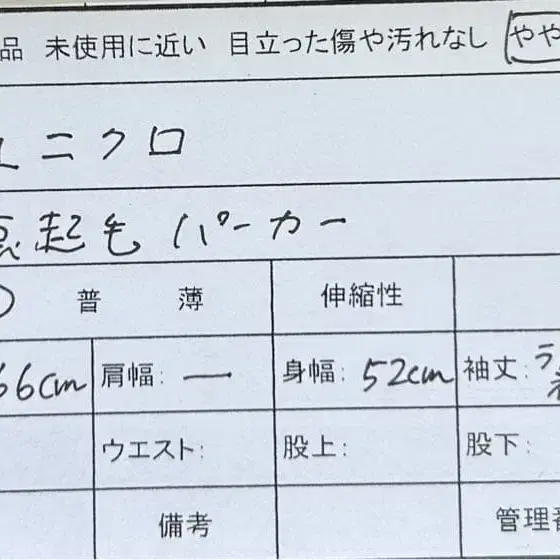 品 未使用に近い 目立った傷や汚れなし やや
ユニクロ
裏起毛パーカー
普 薄 伸縮性
66cm 肩幅: ー 身幅: 52cm 袖丈: ラ
ウエスト: 股上: 股下:
備考 管理番